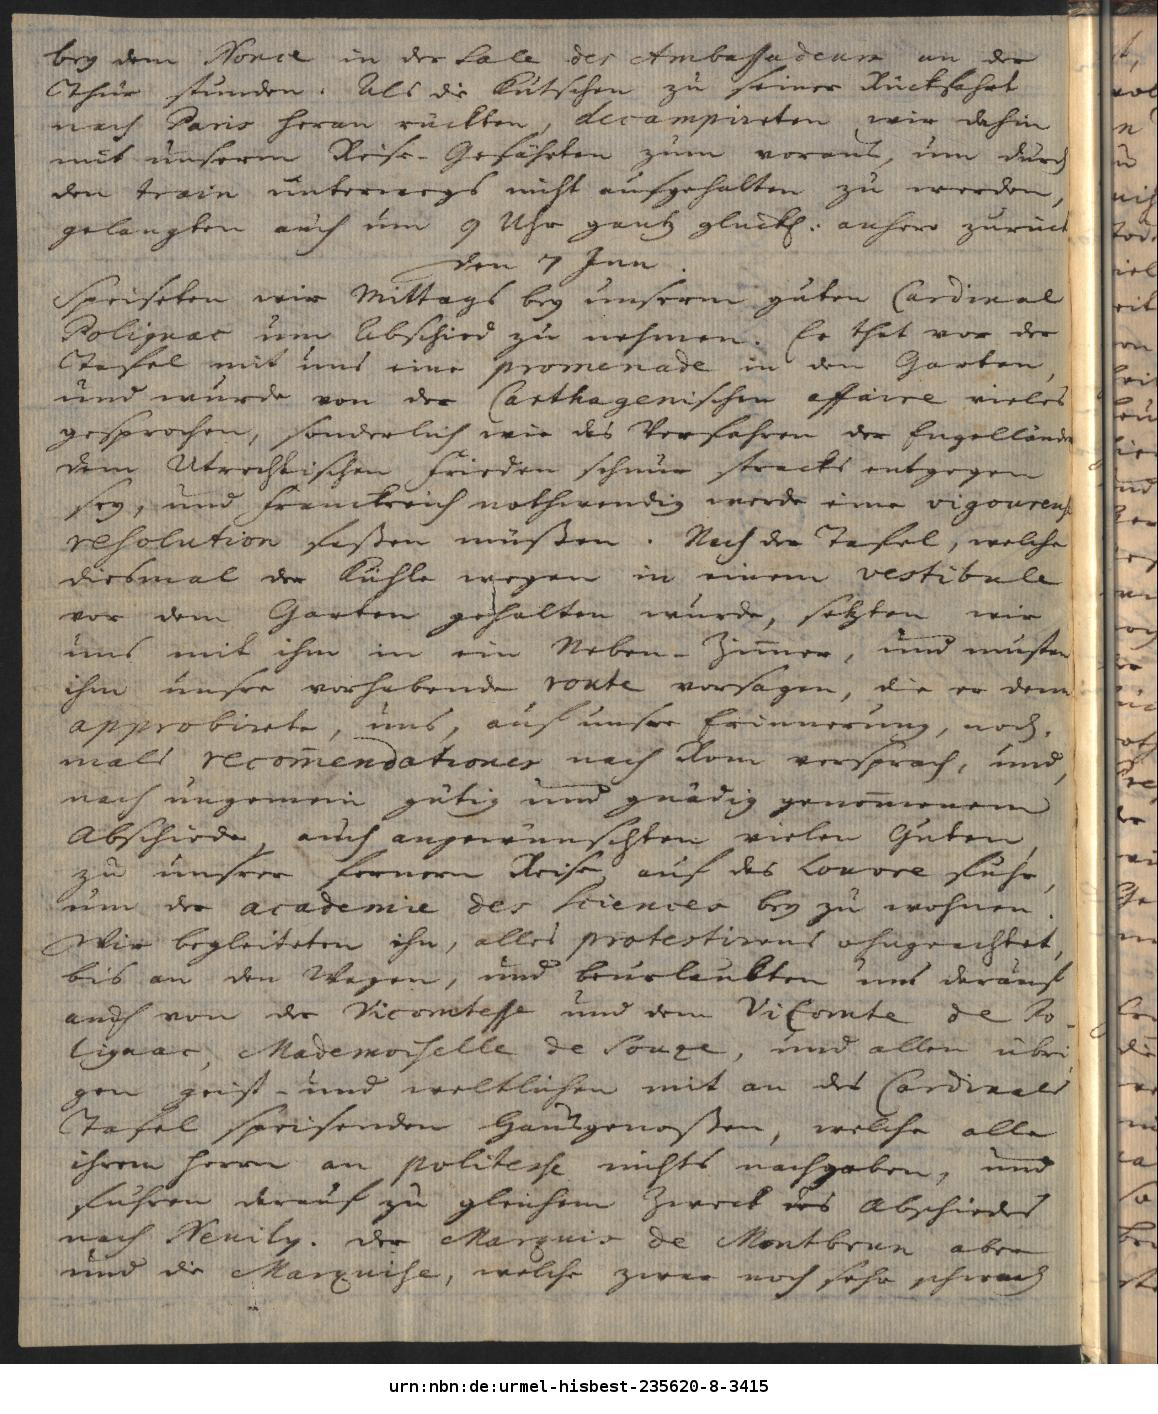 bey dem Nonce in der Sale des Ambassadeurs an der
Thür stunden. Als die Kutschen zu seiner Rückfahrt
nach Paris heran rückten, decampireten wir dahin
mit unserm Reise-Gefährten zum voraus, um durch
den train unterwegs nicht aufgehalten zu werden,
gelangten auch um 9 Uhr gantz glückl. anhero zurück
den 7 Jun.
Speiseten wir Mittags bey unserm guten Cardinal
Polignac um Abschied zu nehmen. Er that vor der
Tafel mit uns eine promenade in den Garten,
und wurde von der Carthagenischen affaire vieles
gesprochen, sonderlich wie das Verfahren der Engelländer
dem Utrechtischen Frieden schnur stracks entgegen
sey, und Franckreich nothwendig werde eine vigoureuse
resolution faßen müßen. Nach der Tafel, welche
diesmal der Kühle wegen in einem vestibule
vor dem Garten gehalten wurde, setzten wir
uns mit ihm in ein Neben-Zim̄er, und musten
ihm unsre vorhabende route vorsagen, die er denn
approbirete, uns, auf unsre Erinnerung, noch-
mals recom̄endationes nach Rom versprach, und,
nach ungemein gütig und gnädig genom̄enem
Abschiede, auch angewünschten vielen Guten,
zu unsrer fernern Reise, auf das Louvre fuhr,
um der academie des Sciences bey zu wohnen.
Wir begleiteten ihn, alles protestirens ohngeachtet,
bis an den Wagen, und beurlaubten uns darauf
auch von der Vicomtesse und dem ViComte de Po-
lignac, Mademoiselle de Souze, und allen übri-
gen geist- und weltlichen mit an des Cardinals
Tafel speisenden Hausgenoßen, welche alle
ihrem Herrn an politesse nichts nachgaben, und
fuhren darauf zu gleichem Zweck des Abschiedes
nach Neuily. der Marquis de Montbrun aber
und die Marquise, welche zwar noch sehr schwach
urn:nbn:de:urmel-hisbest-235620-8-3415